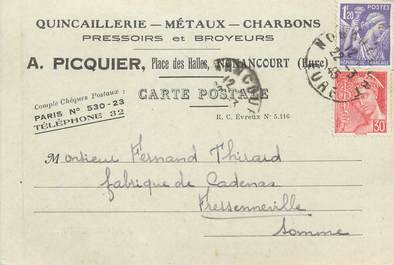 QUINCAILLERIE – MÉTAUX – CHARBONS
PRESSOIRS et BROYEURS
A. PICQUIER, Place des Halles, NONANCOURT (Eure)
CARTE POSTALE
Compte Chèques Postaux :
PARIS N° 530-23
TÉLÉPHONE 32
R. C. Evreux N° 5.116
1F20
REPUBLIQUE FRANÇAISE
30
Monsieur Fernand Thirard
fabrique de Cadenas
Fressenneville
Somme